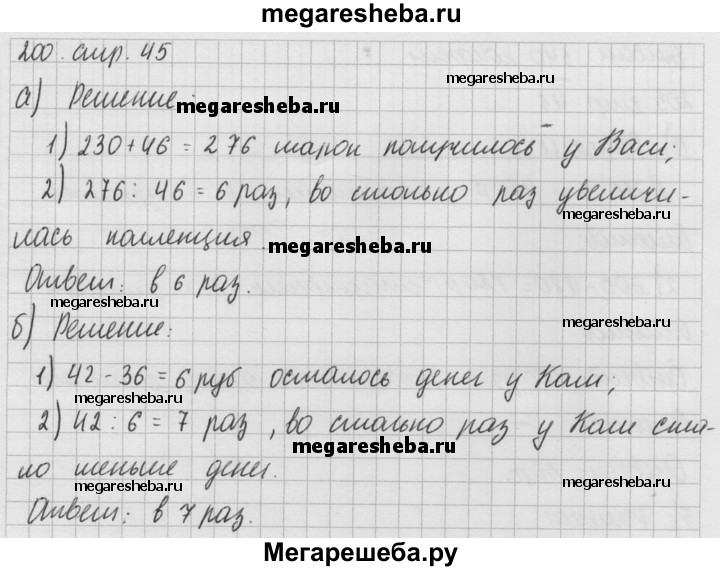 megaresheba.ru
200. стр. 45
megaresheba.ru
а) Решение:
megaresheba.ru
1) 230+46 = 276 марок получилось у Васи;
megaresheba.ru
2) 276 : 46 = 6 раз, во столько раз увеличи-
megaresheba.ru
лась коллекция.
megaresheba.ru
Ответ: в 6 раз.
megaresheba.ru
б) Решение:
megaresheba.ru
1) 42 - 36 = 6 руб осталось денег у Коли;
megaresheba.ru
2) 42 : 6 = 7 раз, во столько раз у Коли ста-
megaresheba.ru
ло меньше денег.
megaresheba.ru
megaresheba.ru
Ответ: в 7 раз.
Мегарешеба.ру